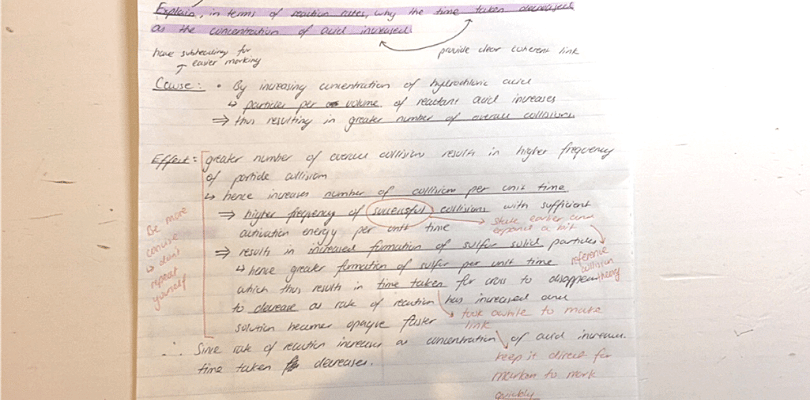 Explain, in terms of reaction rates, why the time taken decreased
as the concentration of acid increased.
have subheading for
easier marking
provide clear coherent link
Cause: • By increasing concentration of hydrochloric acid
↳ particles per volume of reactant acid increases
⇒ thus resulting in greater number of overall collisions
Effect: greater number of overall collisions results in higher frequency
of particle collision
↳ hence increases number of collisions per unit time
⇒ higher frequency of successful collisions with sufficient
activation energy per unit time
→ state earlier and
expand a bit
reference
collision
theory
⇒ results in increased formation of sulfur solid particles
↳ hence greater formation of sulfur per unit time
which thus results in time taken for cross to disappear
to decrease as rate of reaction has increased and
solution becomes opaque faster
Be more
concise
↳ don't
repeat
yourself
→ took awhile to make
link
∴ Since rate of reaction increases as concentration of acid increases.
time taken decreases.
keep it direct for
markers to mark
quickly